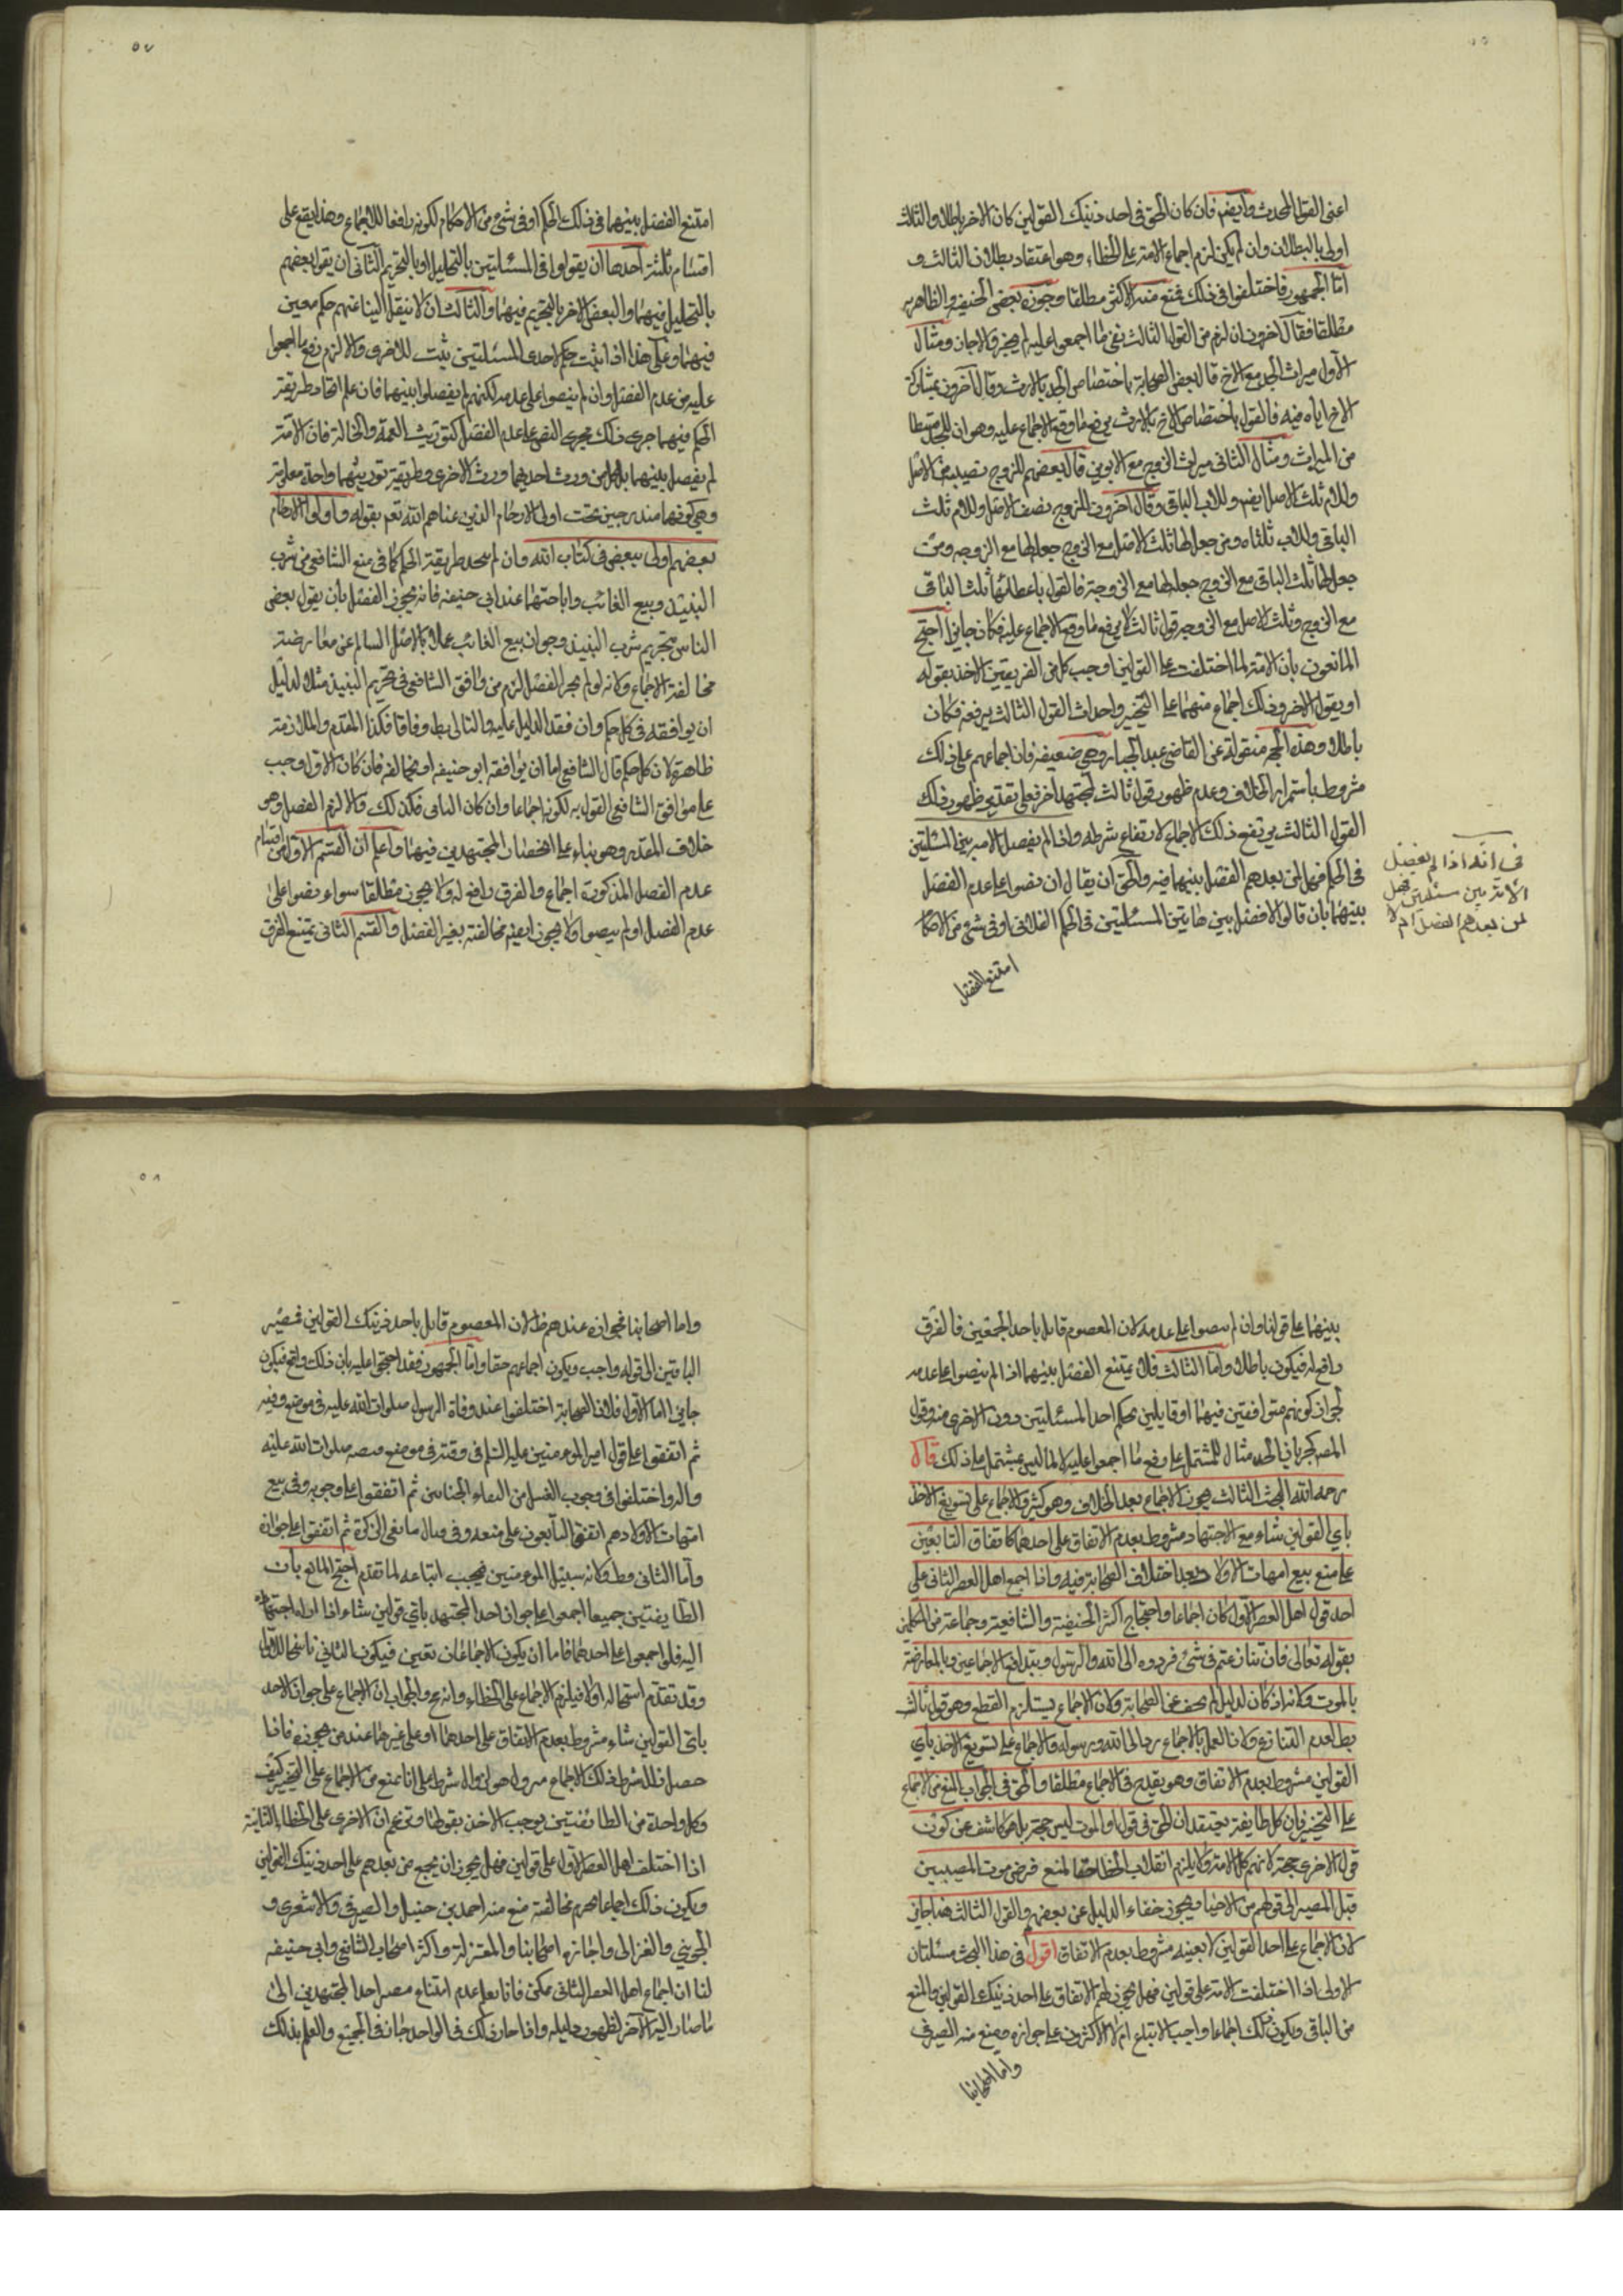 اعنى القول المحدث وأيضم فان كان الحق فى احد ذينك القولين كان الاخر باطلا والثالث
اولى بالبطلان وان لم يكن لزم اجماع الامة على الخطاء وهو اعتقاد بطلان الثالث و
امّا الجمهور فاختلفوا فى ذلك فمنع منه الاكثر مطلقا وجوزه بعض الحنيفه والظاهريه
مطلقا فقال آخرون ان لزم من القول الثالث نفى ما اجمعوا عليه لم يجز والا جاز ومثال
الاول ميراث الجد مع الاخ قال بعض الصحابة باختصاص الجد بالارث وقال آخرون بمشاركة
الاخ اياه فيه فالقول باختصاص الاخ بالارث يرفع ما وقع الاجماع عليه وهو ان للجد قسطا
من الميراث ومثال الثانى ميراث الزوج مع الابوين قال بعضهم للزوج نصيبه من الاصل
وللام ثلث الاصل ايضم وللاب الباقى وقال آخرون للزوج نصف الاصل وللام ثلث
الباقى وللاب ثلثاه ومن جعل لها ثلث الاصل مع الزوج جعل لها مع الزوجه ومن
جعل لها ثلث الباقى مع الزوج جعل لها مع الزوجة فالقول باعطائها ثلث الباقى
مع الزوج وثلث الاصل مع الزوجه قول ثالث لا يرفع ما وقع الاجماع عليه فكان جايزا احتج
المانعون بأن الامة لما اختلفت على القولين اوجب كل من الفريقين الاخذ بقوله
او بقول الاخر وذلك اجماع منهما على التخيير واحداث القول الثالث يرفعه فكان
باطلا وهذه الحجة منقولة عن القاضى عبد الجبار وهى ضعيفة فان اجماعهم على ذلك
مشروط باستمرار الخلاف وعدم ظهور قول ثالث لمجتهد آخر فعلى تقدير ظهور ذلك
القول الثالث يرتفع ذلك الاجماع لارتفاع شرطه واذا لم يفصل الامة بين المسئلتين
فى الحكم فهل لمن بعدهم الفصل بينهما فيه والحق ان يقال ان نصوا على عدم الفصل
بينهما بان قالوا لا فصل بين هاتين المسئلتين فى الحكم الفلانى او فى شئ من الاحكام
امتنع الفصل
فى انّه اذا لم يفصل
الامّة بين مسئلتين فهل
لمن بعدهم الفصل ام لا
٥٧
امتنع الفصل بينهما فى ذلك الحكم او فى شئ من الاحكام لكونه رافعا للاجماع وهذا يقع على
اقسام ثلثة احدها ان يقولوا فى المسئلتين بالتحليل او بالتحريم الثانى ان يقول بعضهم
بالتحليل فيهما والبعض الاخر بالتحريم فيهما والثالث ان لا ينقل الينا عنهم حكم معين
فيهما وعلى هذا اذا ثبت حكم لاحدى المسئلتين ثبت للاخرى والا لزم رفع ما اجمعوا
عليه من عدم الفصل وان لم ينصوا على عدمه لكنهم لم يفصلوا بينهما فان علم اتحاد طريقة
الحكم فيهما جرى ذلك مجرى النص على عدم الفصل كتوريث العمة والخالة فان الامة
لم يفصل بينهما بل كل من ورث احديهما ورث الاخرى وطريقة توريثهما واحدة معلومة
وهى كونهما مندرجين تحت اولى الارحام الذين عناهم الله تعم بقوله واولوا الارحام
بعضهم اولى ببعض فى كتاب الله وان لم يتحد طريقة الحكم كما فى منع الشافعى من شرب
النبيذ وبيع الغائب واباحتهما عند ابى حنيفه فانه يجوز الفصل بأن يقول بعض
الناس بتحريم شرب النبيذ وجواز بيع الغائب عملا بالاصل السالم عن معارضة
مخالفة الاجماع ولانه لو لم يجز الفصل لزم من وافق الشافعى فى تحريم النبيذ مثلا لدليل
ان يوافقه فى كل حكم وان فقد الدليل عليه والتالى بط وفاقا فكذا المقدم والملازمة
ظاهرة لان كل حكم قال الشافعى اما ان يوافقه ابو حنيفه او يخالفه فان كان الاول وجب
على موافق الشافعى القول به لكونه اجماعا وان كان الثانى فكذلك والا لزم الفصل وهو
خلاف المقدر وهو بناء على انحصار المجتهدين فيهما واعلم ان القسم الاول من اقسام
عدم الفصل المذكورة اجماع والفرق رافع له ولا يجوز مطلقا سواء نصوا على
عدم الفصل او لم ينصوا ولا يجوز ايضم مخالفته بغير الفصل والقسم الثانى يمتنع الفرق
بينهما على قولنا وان لم ينصوا على عدمه لان المعصوم قائل باحد الحقين فالفرق
رافع له فيكون باطلا وامّا الثالث فلا يمتنع الفصل بينهما اذا لم ينصوا على عدمه
لجواز كونهم متوافقين فيهما او قايلين بحكم احد المسئلتين دون الاخرى منه وقول
المصر كحرمان الجد مثال للمشتمل على رفع ما اجمعوا عليه لا لما ليس بمشتمل على ذلك قال
رحمه الله البحث الثالث يجوز الاجماع بعد الخلاف وهو كثير والاجماع على تسويغ الاخذ
بأي القولين شاء مع الاجتهاد مشروط بعدم الاتفاق على احدهما كاتفاق التابعين
على منع بيع امهات الاولاد بعد اختلاف الصحابة فيه واذا اجمع اهل العصر الثانى على
احد قولى اهل العصر الاول كان اجماعا واحتجاج اكثر الحنيفية والشافعية وجماعة من المتكلمين
بقوله تعالى فان تنازعتم فى شئ فردوه الى الله والرسول وبتدافع الاجماعين وبالمعارضة
بالموت ولانه اذ كان لدليل لم يخف عن الصحابة ولان الاجماع يستلزم القطع وهو قول ثالث
بط لعدم التنازع ولان العمل بالاجماع رد الى الله ورسوله والاجماع على تسويغ الاخذ بأي
القولين مشروط بعدم الاتفاق وهو بقديه فى الاجماع مطلقا والحق فى الجواب المنع من الاجماع
على التخيير فان كل طايفة يعتقد ان الحق فى قولها والموت ليس حجة بل هو كاشف عن كون
قول الاخرى حجة لانهم كل الامة ولا يلزم انقلاب الخطا حقا لمنع فرض موت المصيبين
قبل المصير الى قولهم من الاحيا ويجوز خفاء الدليل عن بعضهم والقول الثالث هنا جايز
لان الاجماع على احد القولين لا بعينه مشروط بعدم الاتفاق اقول فى هذا البحث مسئلتان
الاولى اذا اختلفت الامة على قولين فهل يجوز لهم الاتفاق على احد ذينك القولين والمنع
من الباقى ويكون ذلك اجماعا واجب الاتباع ام لا الاكثرون على جوازه ومنع منه الصيرفى
واما اصحابنا
٥٨
واما اصحابنا فجوازه عندهم ظ لان المعصوم قايل باحد ذينك القولين فمصير
الباقين الى قوله واجب ويكون اجماعهم حقا وامّا الجمهور فقد احتجوا عليه بان ذلك واقع فيكون
جايزا اما الاول فلان الصحابة اختلفوا عند وفاة الرسول صلوات الله عليه فى موضع دفنه
ثم اتفقوا على قول امير المومنين عليه السلم فى دفنه فى موضع قبضه صلوات الله عليه
واله واختلفوا فى وجوب الغسل من التقاء الختانين ثم اتفقوا على وجوبه وفى بيع
امهات الاولاد ثم اتفق التابعون على منعه وفى قتال مانعى الزكوة ثم اتفقوا على جوازه
وامّا الثانى فط ولانه سبيل المومنين فيجب اتباعه لما تقدم احتج المانع بأن
الطايفتين جميعا اجمعوا على جواز اخذ المجتهد بأى قولين شاء اذا اداه اجتهاده
اليه فلو اجمعوا على احدهما فاما ان يكون الاجماعان تعين فيكون الثاني ناسخا للاول
وقد تقدم استحالته اولا فيلزم الاجماع على الخطاء وانه مح والجواب ان الاجماع على جواز الاخذ
باى القولين شاء مشروط بعدم الاتفاق على احدهما او على غيرهما عند من يجوزه فاذا
حصل زال شرط ذلك الاجماع فيزول هو لزوال شرطه على انا نمنع من الاجماع على التخيير كيف
وكل واحدة من الطائفتين يوجب الاخذ بقولها وتزعم ان الاخرى على الخطاء الثانية
اذا اختلف اهل العصر الاول على قولين فهل يجوز ان يجمع من بعدهم على احد ذينك القولين
ويكون ذلك اجماعا يحرم مخالفته منع منه احمد بن حنبل والصيرفى والاشعرى و
الجويني والغزالى واجازه اصحابنا والمعتزلة واكثر اصحاب الشافعى وابى حنيفه
لنا ان اجماع اهل العصر الثانى ممكن فانا نعلم عدم امتناع مصير احد المجتهدين الى
ما صار اليه الآخر لظهور دليله واذا جاز ذلك فى الواحد جاز فى الجميع والعلم بذلك